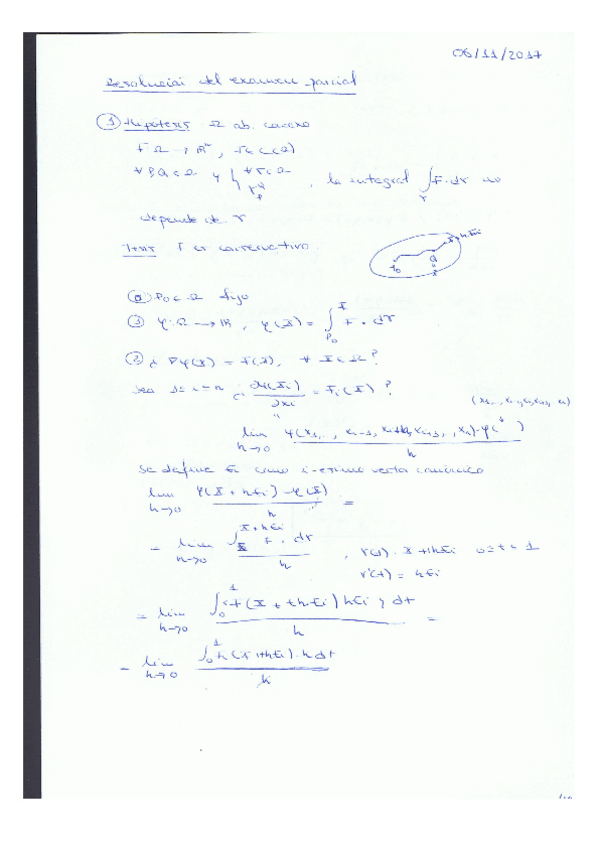 06/11/2017
Resolución del examen parcial
① Hipótesis Ω ab. conexo
F: Ω → ℝⁿ, F ∈ C(Ω)
∀ P,Q ∈ Ω y ∀ γ ⊂ Ω, la integral ∫_γ F·dr no
depende de γ
Tesis F es conservativo.
P₀ Q x̄ x̄+hēi
⓪ P₀ ∈ Ω fijo
① φ: Ω → ℝ, φ(x̄) = ∫_{P₀}^{x̄} F · dr
② ¿ ∇φ(x̄) = F(x̄), ∀ x̄ ∈ Ω ?
Sea 1 ≤ i ≤ n ¿ ∂φ(x̄)/∂xi = Fi(x̄) ?
lim h→0
Se define ēi como i-ésimo vector canónico
lim h→0 (φ(x̄ + hēi) - φ(x̄))/h =
= lim h→0 (∫_{x̄}^{x̄+hēi} F · dr)/h , r(t) = x̄ + thēi 0 ≤ t ≤ 1
r'(t) = hēi
= lim h→0 (∫₀¹ <F(x̄ + thēi), hēi> dt)/h =
= lim h→0 (∫₀¹ Fi(x̄ + thēi) · h dt)/h